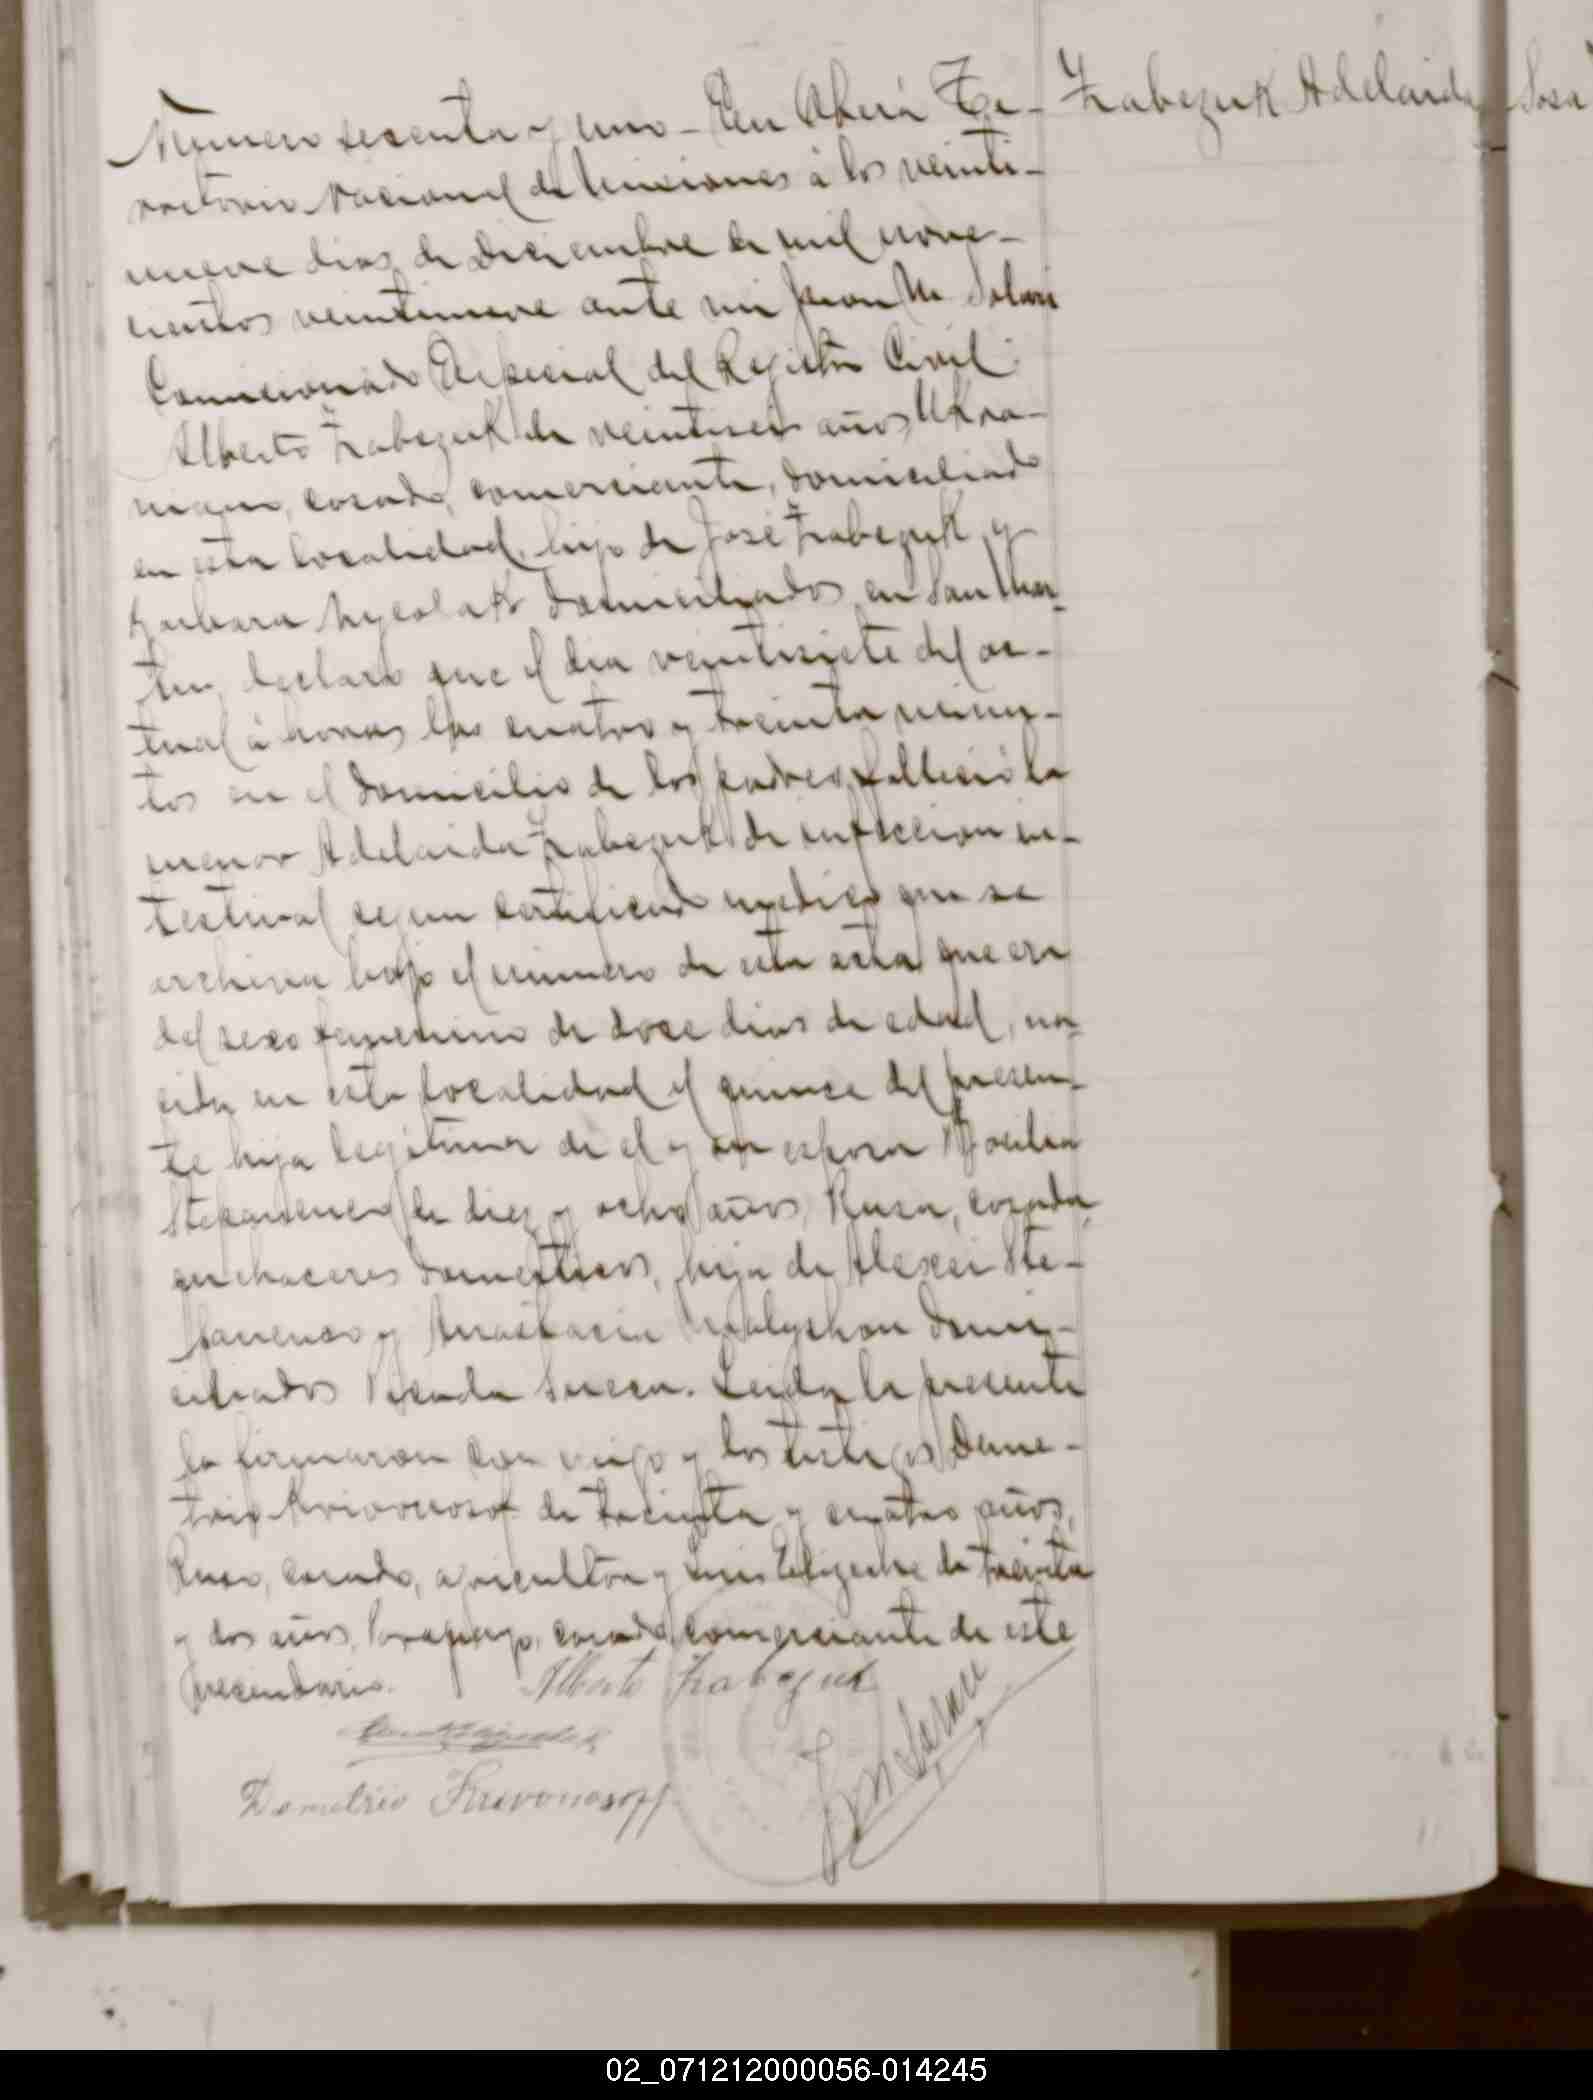 Número sesenta y uno – En Oberá Te- Zrabczuk Adelaida
rritorio Nacional de Misiones á los veinti-
nueve dias de Diciembre de mil nove-
cientos veintinueve ante mi Juan M. Solari
Comicionado Especial del Registro Civil
Alberto Zrabczuk de veintiseis años Ukra-
niano, casado, comerciante, domiciliado
en esta localidad, hijo de José Zrabczuk y
Barbara domiciliados en San Mar-
tin, declaro que el dia veintisiete del ac-
tual á horas las cuatro y treinta minu-
tos en el domicilio de los padres fallecio la
menor Adelaida Zrabczuk de infeccion in-
testinal segun certificado medico que se
archiva bajo el número de esta acta que era
del sexo femenino de doce dias de edad, na-
cida en esta localidad el quince del presen-
te hija legitima de el y su esposa
Stepanenco de diez y ocho años, Rusa, casada,
quehaceres domesticos, hija de Alexei Ste-
panenco y Anastacia domi-
ciliados Picada Sueca. Leida la presente
la firmaron con migo y los testigos Deme-
trio Krivonosof de treinta y cuatro años,
Ruso, casado, agricultor y Luis de treinta
y dos años, Paraguayo, casado comerciante de este
vecindario. Alberto Zrabczuk
Demetrio Krivonosoff